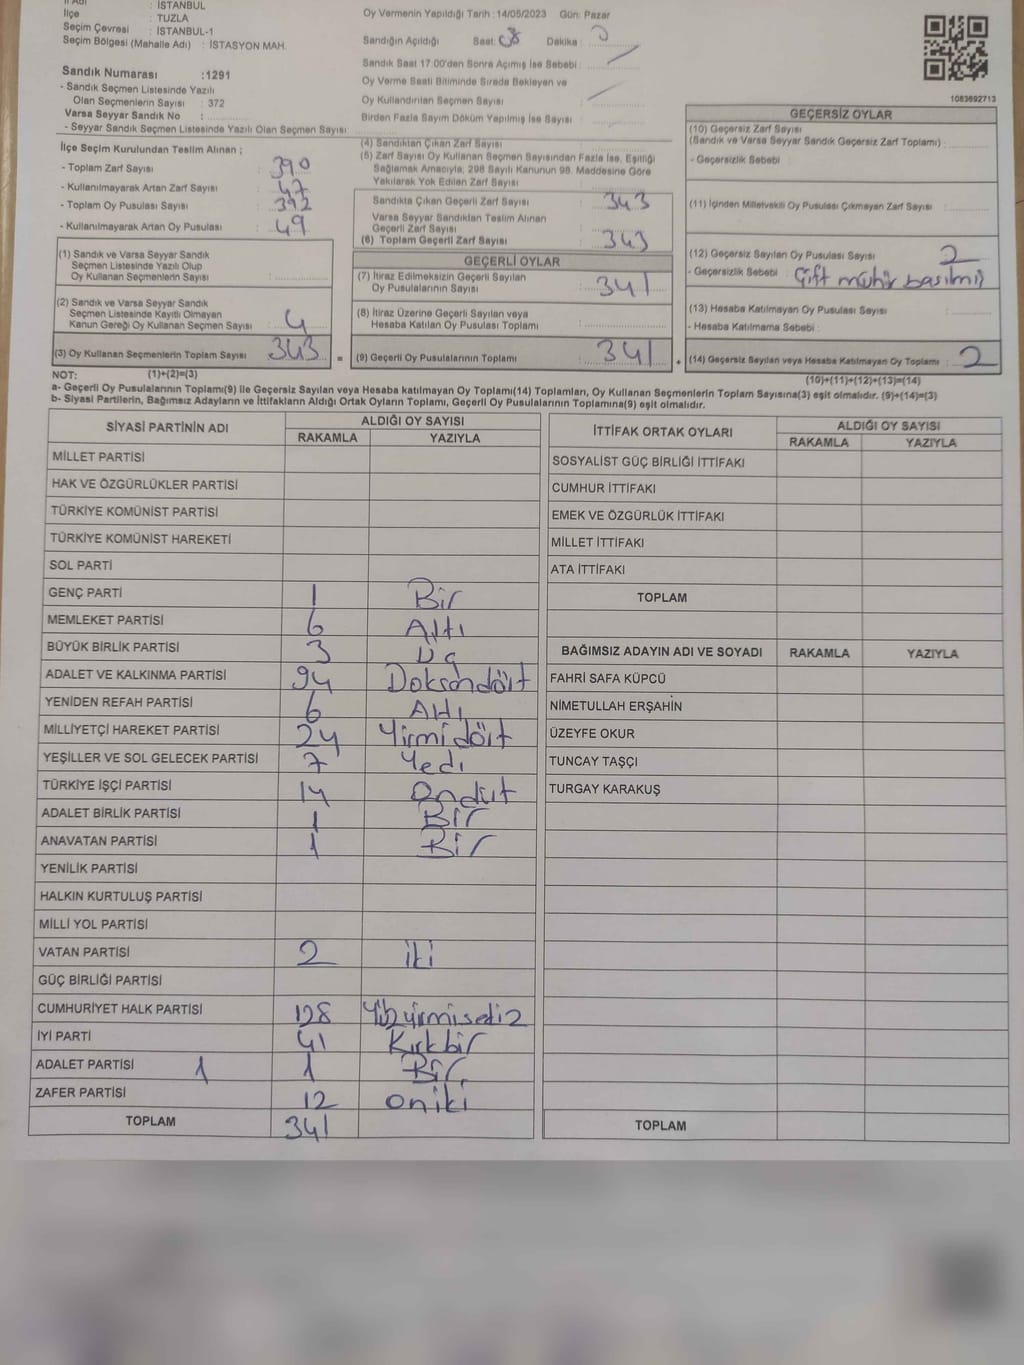 İl Adı : İSTANBUL
İlçe : TUZLA
Seçim Çevresi : İSTANBUL-1
Seçim Bölgesi (Mahalle Adı) : İSTASYON MAH.
Sandık Numarası :1291
- Sandık Seçmen Listesinde Yazılı
Olan Seçmenlerin Sayısı : 372
Varsa Seyyar Sandık No :
- Seyyar Sandık Seçmen Listesinde Yazılı Olan Seçmen Sayısı :
İlçe Seçim Kurulundan Teslim Alınan ;
- Toplam Zarf Sayısı : 390
- Kullanılmayarak Artan Zarf Sayısı : 47
- Toplam Oy Pusulası Sayısı : 392
- Kullanılmayarak Artan Oy Pusulası : 49
(1) Sandık ve Varsa Seyyar Sandık
Seçmen Listesinde Yazılı Olup
Oy Kullanan Seçmenlerin Sayısı :
(2) Sandık ve Varsa Seyyar Sandık
Seçmen Listesinde Kayıtlı Olmayan
Kanun Gereği Oy Kullanan Seçmen Sayısı : 4
(3) Oy Kullanan Seçmenlerin Toplam Sayısı : 343
Oy Vermenin Yapıldığı Tarih : 14/05/2023 Gün: Pazar
Sandığın Açıldığı Saat: 08 Dakika :
Sandık Saat 17:00'den Sonra Açılmış İse Sebebi :
Oy Verme Saati Bitiminde Sırada Bekleyen ve
Oy Kullandırılan Seçmen Sayısı :
Birden Fazla Sayım Döküm Yapılmış İse Sayısı :
(4) Sandıktan Çıkan Zarf Sayısı :
(5) Zarf Sayısı Oy Kullanan Seçmen Sayısından Fazla İse, Eşitliği
Sağlamak Amacıyla, 298 Sayılı Kanunun 98. Maddesine Göre
Yakılarak Yok Edilen Zarf Sayısı :
Sandıkta Çıkan Geçerli Zarf Sayısı : 343
Varsa Seyyar Sandıktan Teslim Alınan
Geçerli Zarf Sayısı :
(6) Toplam Geçerli Zarf Sayısı : 343
GEÇERLİ OYLAR
(7) İtiraz Edilmeksizin Geçerli Sayılan
Oy Pusulalarının Sayısı : 341
(8) İtiraz Üzerine Geçerli Sayılan veya
Hesaba Katılan Oy Pusulası Toplamı :
= (9) Geçerli Oy Pusulalarının Toplamı : 341
1083692713
GEÇERSİZ OYLAR
(10) Geçersiz Zarf Sayısı
(Sandık ve Varsa Seyyar Sandık Geçersiz Zarf Toplamı) :
- Geçersizlik Sebebi :
(11) İçinden Milletvekili Oy Pusulası Çıkmayan Zarf Sayısı :
(12) Geçersiz Sayılan Oy Pusulası Sayısı : 2
- Geçersizlik Sebebi : Çift mühür basılmış
(13) Hesaba Katılmayan Oy Pusulası Sayısı :
- Hesaba Katılmama Sebebi :
+ (14) Geçersiz Sayılan veya Hesaba Katılmayan Oy Toplamı : 2
NOT: (1)+(2)=(3) (10)+(11)+(12)+(13)=(14)
a- Geçerli Oy Pusulalarının Toplamı(9) ile Geçersiz Sayılan veya Hesaba katılmayan Oy Toplamı(14) Toplamları, Oy Kullanan Seçmenlerin Toplam Sayısına(3) eşit olmalıdır. (9)+(14)=(3)
b- Siyasi Partilerin, Bağımsız Adayların ve İttifakların Aldığı Ortak Oyların Toplamı, Geçerli Oy Pusulalarının Toplamına(9) eşit olmalıdır.
SİYASİ PARTİNİN ADI ALDIĞI OY SAYISI
RAKAMLA YAZIYLA
MİLLET PARTİSİ
HAK VE ÖZGÜRLÜKLER PARTİSİ
TÜRKİYE KOMÜNİST PARTİSİ
TÜRKİYE KOMÜNİST HAREKETİ
SOL PARTİ
GENÇ PARTİ 1 Bir
MEMLEKET PARTİSİ 6 Altı
BÜYÜK BİRLİK PARTİSİ 3 Üç
ADALET VE KALKINMA PARTİSİ 94 Doksandört
YENİDEN REFAH PARTİSİ 6 Altı
MİLLİYETÇİ HAREKET PARTİSİ 24 Yirmidört
YEŞİLLER VE SOL GELECEK PARTİSİ 7 Yedi
TÜRKİYE İŞÇİ PARTİSİ 14 Ondört
ADALET BİRLİK PARTİSİ 1 Bir
ANAVATAN PARTİSİ 1 Bir
YENİLİK PARTİSİ
HALKIN KURTULUŞ PARTİSİ
MİLLİ YOL PARTİSİ
VATAN PARTİSİ 2 iki
GÜÇ BİRLİĞİ PARTİSİ
CUMHURİYET HALK PARTİSİ 128 Yüzyirmisekiz
İYİ PARTİ 41 Kırkbir
ADALET PARTİSİ 1 1 Bir
ZAFER PARTİSİ 12 oniki
TOPLAM 341
İTTİFAK ORTAK OYLARI ALDIĞI OY SAYISI
RAKAMLA YAZIYLA
SOSYALİST GÜÇ BİRLİĞİ İTTİFAKI
CUMHUR İTTİFAKI
EMEK VE ÖZGÜRLÜK İTTİFAKI
MİLLET İTTİFAKI
ATA İTTİFAKI
TOPLAM
BAĞIMSIZ ADAYIN ADI VE SOYADI RAKAMLA YAZIYLA
FAHRİ SAFA KÜPCÜ
NİMETULLAH ERŞAHİN
ÜZEYFE OKUR
TUNCAY TAŞÇI
TURGAY KARAKUŞ
TOPLAM